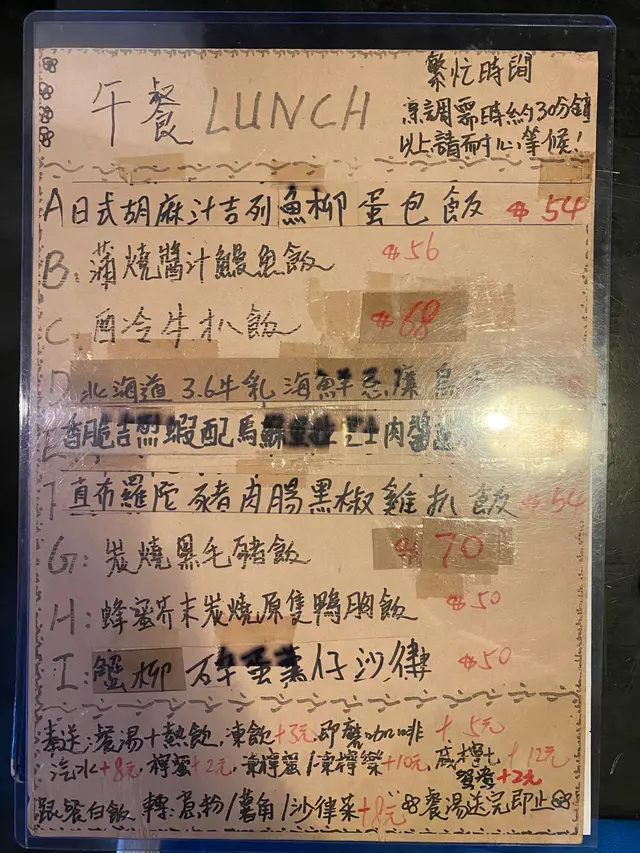 繁忙時間
午餐 LUNCH
烹調需時約30分鐘
以上請耐心等候!
A 日式胡麻汁吉列魚柳蛋包飯 $54
B. 蒲燒醬汁鰻魚飯 $56
C. 西冷牛扒飯 $68
D 北海道 3.6牛乳海鮮
E 香脆吉列蝦配 肉醬
F 直布羅陀豬肉腸黑椒雞扒飯 $54
G: 炭燒黑毛豬飯 $70
H: 蜂蜜芥末炭燒原隻鴨胸飯 $50
I: 蟹柳 薯仔沙律 $50
奉送:餐湯+熱飲,凍飲+3元,即磨咖啡 +5元
汽水+8元,檸蜜+2元,凍檸蜜/凍檸樂+10元,咸檸七+12元
鴛鴦+2元
跟餐白飯 轉:意粉/薯角/沙律菜+8元 餐湯送完即止